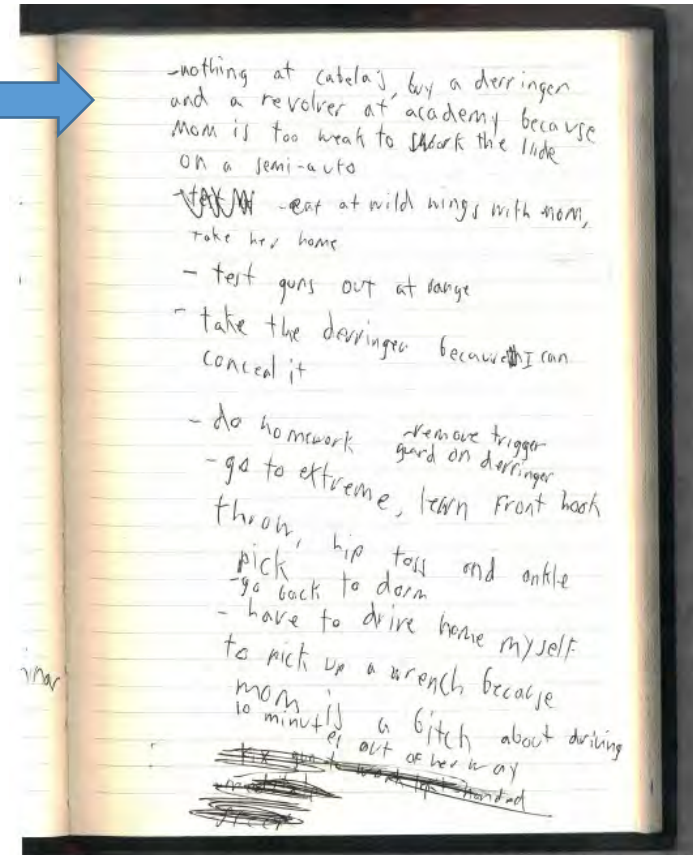 -nothing at cabela's, buy a derringer
and a revolver at academy because
Mom is too weak to work the slide
on a semi-auto
-eat at wild wings with mom,
take her home
- test guns out at range
- take the derringer because I can
conceal it
- do homework
-remove trigger
guard on derringer
- go to extreme, learn front hook
throw, hip toss and ankle
pick
-go back to dorm
- have to drive home myself
to pick up a wrench because
mom is a bitch about driving
10 minutes out of her way
inar